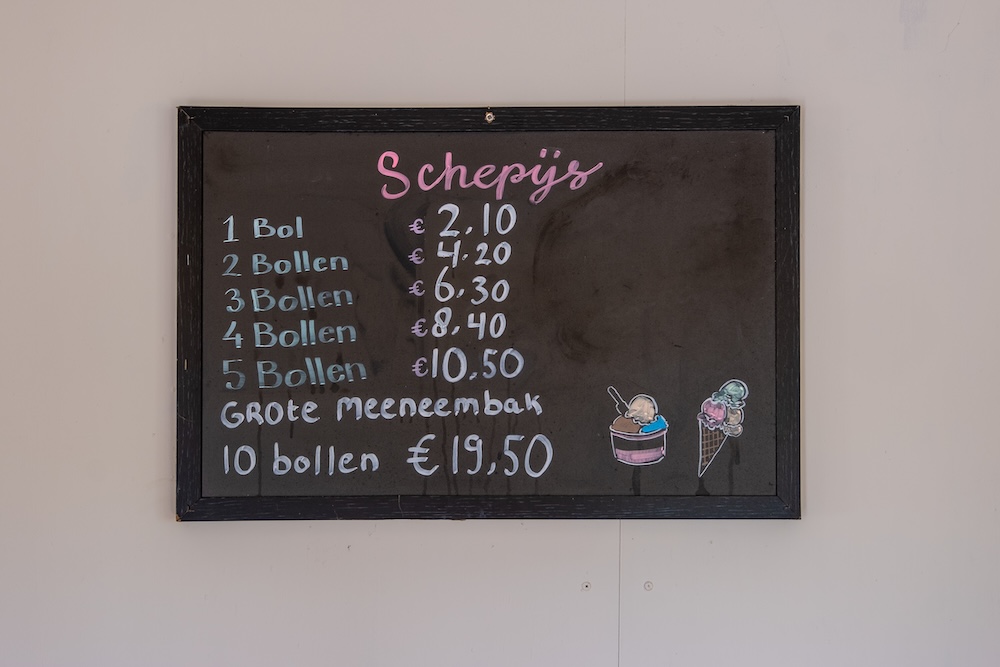 Schepijs
1 Bol € 2,10
2 Bollen € 4,20
3 Bollen € 6,30
4 Bollen € 8,40
5 Bollen € 10,50
GROte Meeneembak
10 bollen € 19,50